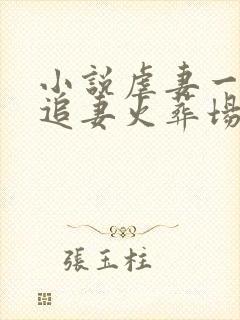 小說虐妻一
追妻火葬場
張玉柱